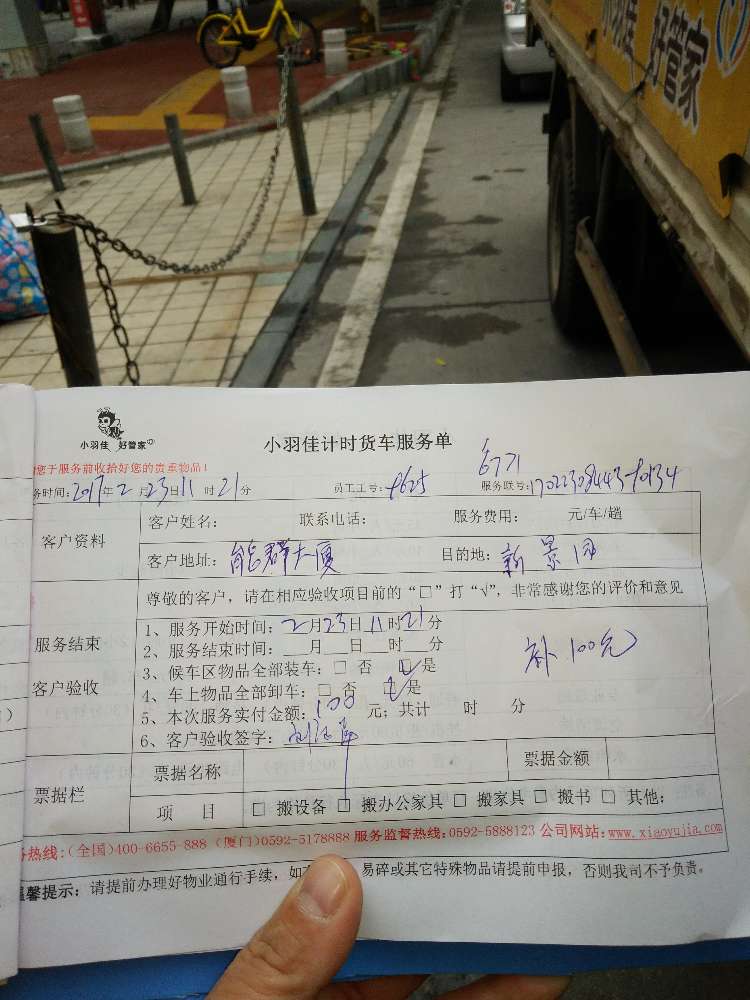 小羽佳 好管家
小羽佳 好管家
小羽佳计时货车服务单
您于服务前收拾好您的贵重物品！
务时间：2017年2月23日11时21分 员工工号： 服务联号：
6771
客户资料
客户姓名： 联系电话： 服务费用： 元/车/趟
客户地址：能群大厦 目的地：新景园
服务结束
客户验收
尊敬的客户，请在相应验收项目前的“□”打“√”，非常感谢您的评价和意见
1、服务开始时间：2月23日11时21分
2、服务结束时间：__月__日__时__分
3、候车区物品全部装车：□ 否 □是
4、车上物品全部卸车：□ 否 □是
5、本次服务实付金额：100 元；共计 时 分
6、客户验收签字：
补100元
票据栏
票据名称 票据金额
项 目 □ 搬设备 □ 搬办公家具 □ 搬家具 □ 搬书 □ 其他：
务热线：(全国)400-6655-888 (厦门)0592-5178888 服务监督热线：0592-5888123 公司网站：www.xiaoyujia.com
温馨提示：请提前办理好物业通行手续，如 易碎或其它特殊物品请提前申报，否则我司不予负责。